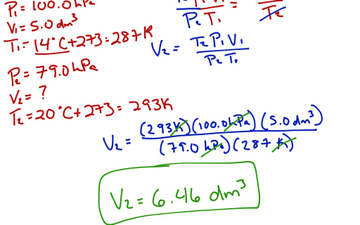 P₁ = 100.0 hPa
V₁ = 5.0 dm³
T₁ = 14°C + 273 = 287K
P₂ = 79.0 hPa
V₂ = ?
T₂ = 20°C + 273 = 293K
P₂ T₁ = T₂
V₂ = T₂ P₁ V₁ / P₂ T₁
V₂ = (293K)(100.0 hPa)(5.0 dm³) / (79.0 hPa)(287 K)
V₂ = 6.46 dm³